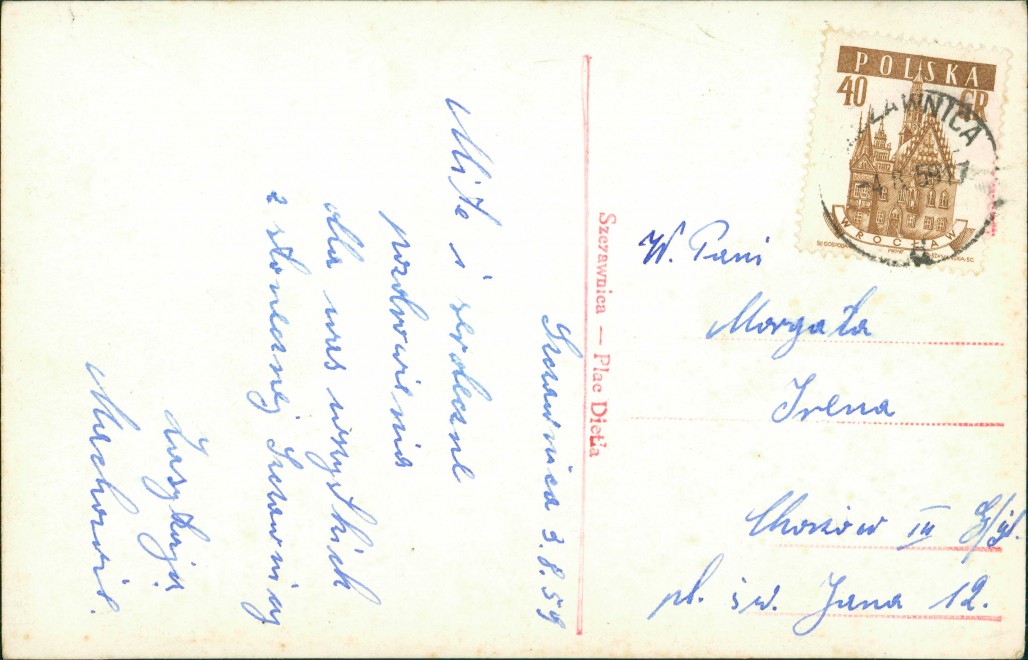 Szczawnica 3.8.59
Miłe i serdeczne
pozdrowienia
dla was wszystkich
z słonecznej Szczawnicy
zasyłają
Szczawnica — Plac Dietla
POLSKA
40 GR
WROCŁAW
ZAWNICA
W. Pani
Morgała
Irena
Chorzów III G/śl.
pl. św. Jana 12.